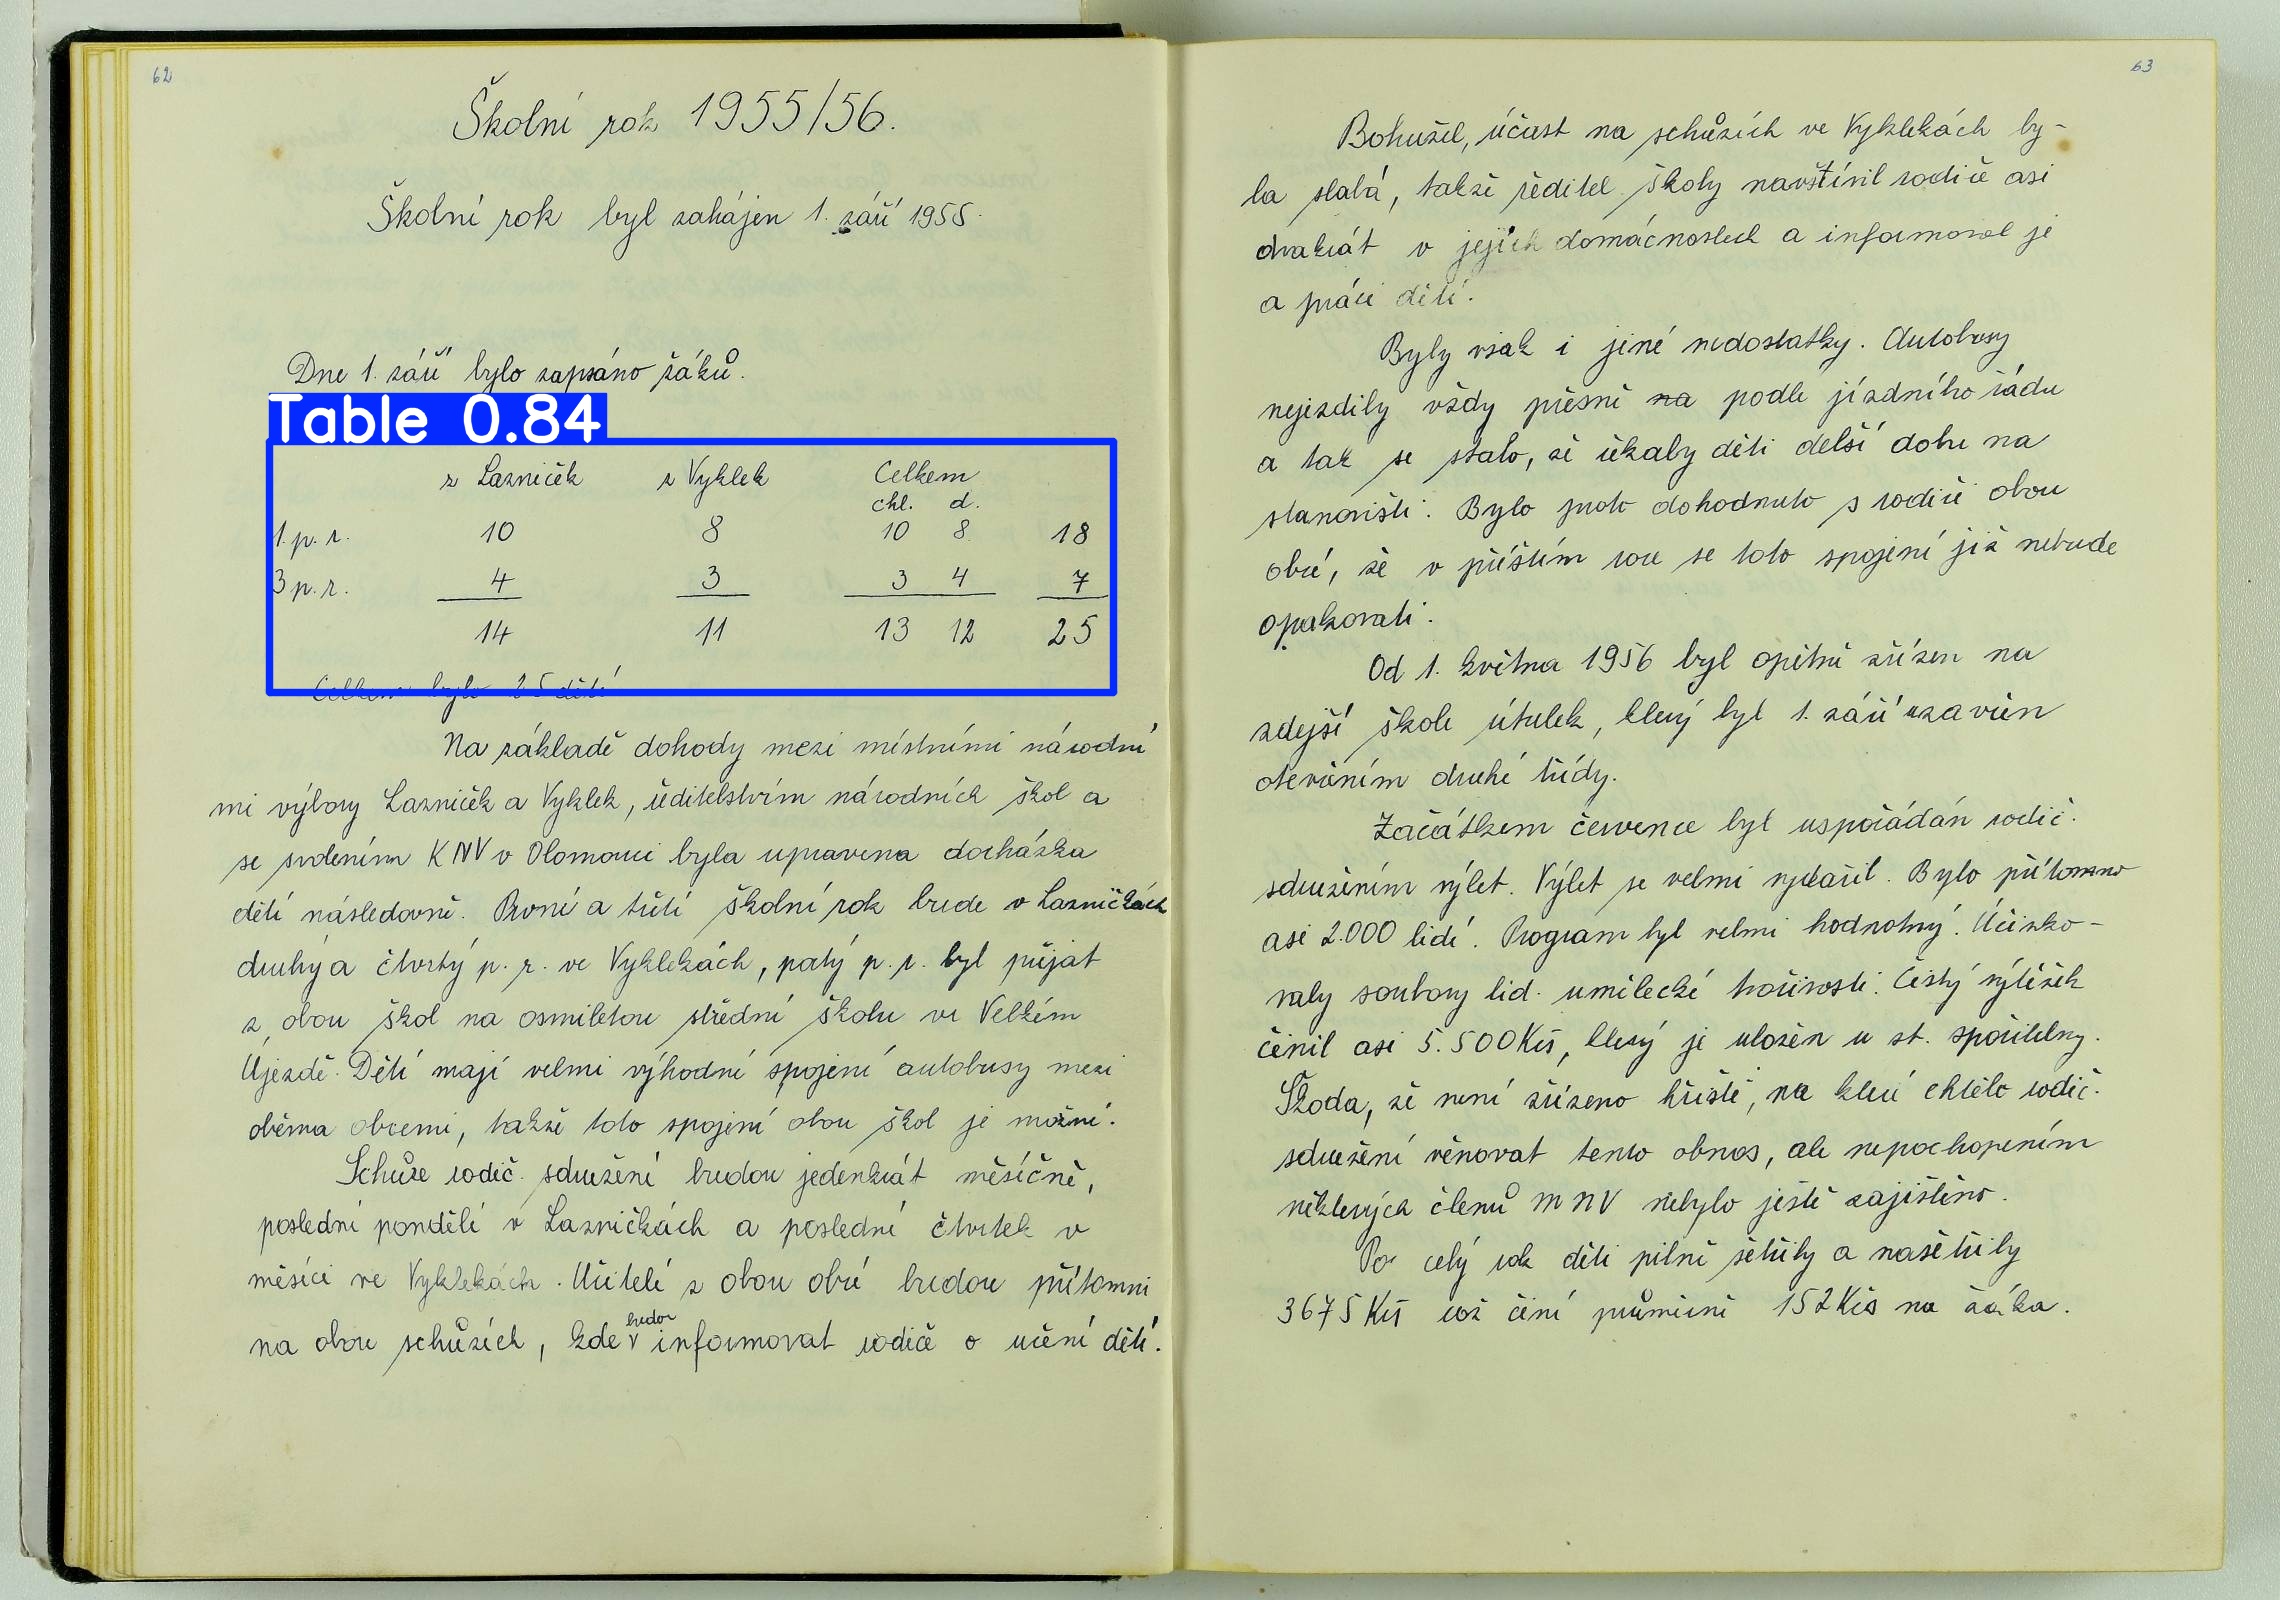 62
Školní rok 1955/56.
Školní rok byl zahájen 1. září 1955.
Dne 1. září bylo zapsáno žáků.
Table 0.84
z Lazniček z Vyklek Celkem
chl. d.
1. p. r. 10 8 10 8 18
3 p. r. 4 3 3 4 7
14 11 13 12 25
Celkem bylo 25 dětí
Na základě dohody mezi místními národní
mi výbory Lazniček a Vyklek, ředitelstvím národních škol a
se svolením KNV v Olomouci byla upravena docházka
dětí následovně. První a třetí školní rok bude v Lazničkách
druhý a čtvrtý p. r. ve Vyklekách, patý p. r. byl přijat
z obou škol na osmiletou střední školu ve Velkém
Újezdě. Děti mají velmi výhodné spojení autobusy mezi
oběma obcemi, takže toto spojení obou škol je možné.
Schůze rodič. sdružení budou jedenkrát měsíčně,
poslední pondělí v Lazničkách a poslední čtvrtek v
měsíci ve Vyklekách. Učitelé z obou obcí budou přítomni
na obou schůzích, kde budou informovat rodiče o učení dětí.
63
Bohužel, účast na schůzích ve Vyklekách by-
la slabá, takže ředitel školy navštívil rodiče asi
dvakrát v jejich domácnostech a informoval je
a práci dětí.
Byly však i jiné nedostatky. Autobusy
nejezdily vždy přesně na podle jízdního řádu
a tak se stalo, že čekaly děti delší dobu na
stanovišti. Bylo proto dohodnuto s rodiči obou
obcí, že v příštím roce se toto spojení již nebude
opakovati.
Od 1. května 1956 byl opětně zřízen na
zdejší škole útulek, který byl 1. září uzavřen
otevřením druhé třídy.
Začátkem července byl uspořádán rodič.
sdružením výlet. Výlet se velmi vydařil. Bylo přítomno
asi 2.000 lidí. Program byl velmi hodnotný. Účinko-
valy soubory lid. umělecké tvořivosti. Čistý výtěžek
činil asi 5.500 Kčs, který je uložen u st. spořitelny.
Škoda, že není zřízeno hřiště, na které chtělo rodič.
sdružení věnovat tento obnos, ale nepochopením
některých členů MNV nebylo ještě zajištěno.
Po celý rok děti pilně šetřily a našetřily
3675 Kčs což činí průměrně 152 Kčs na žáka.